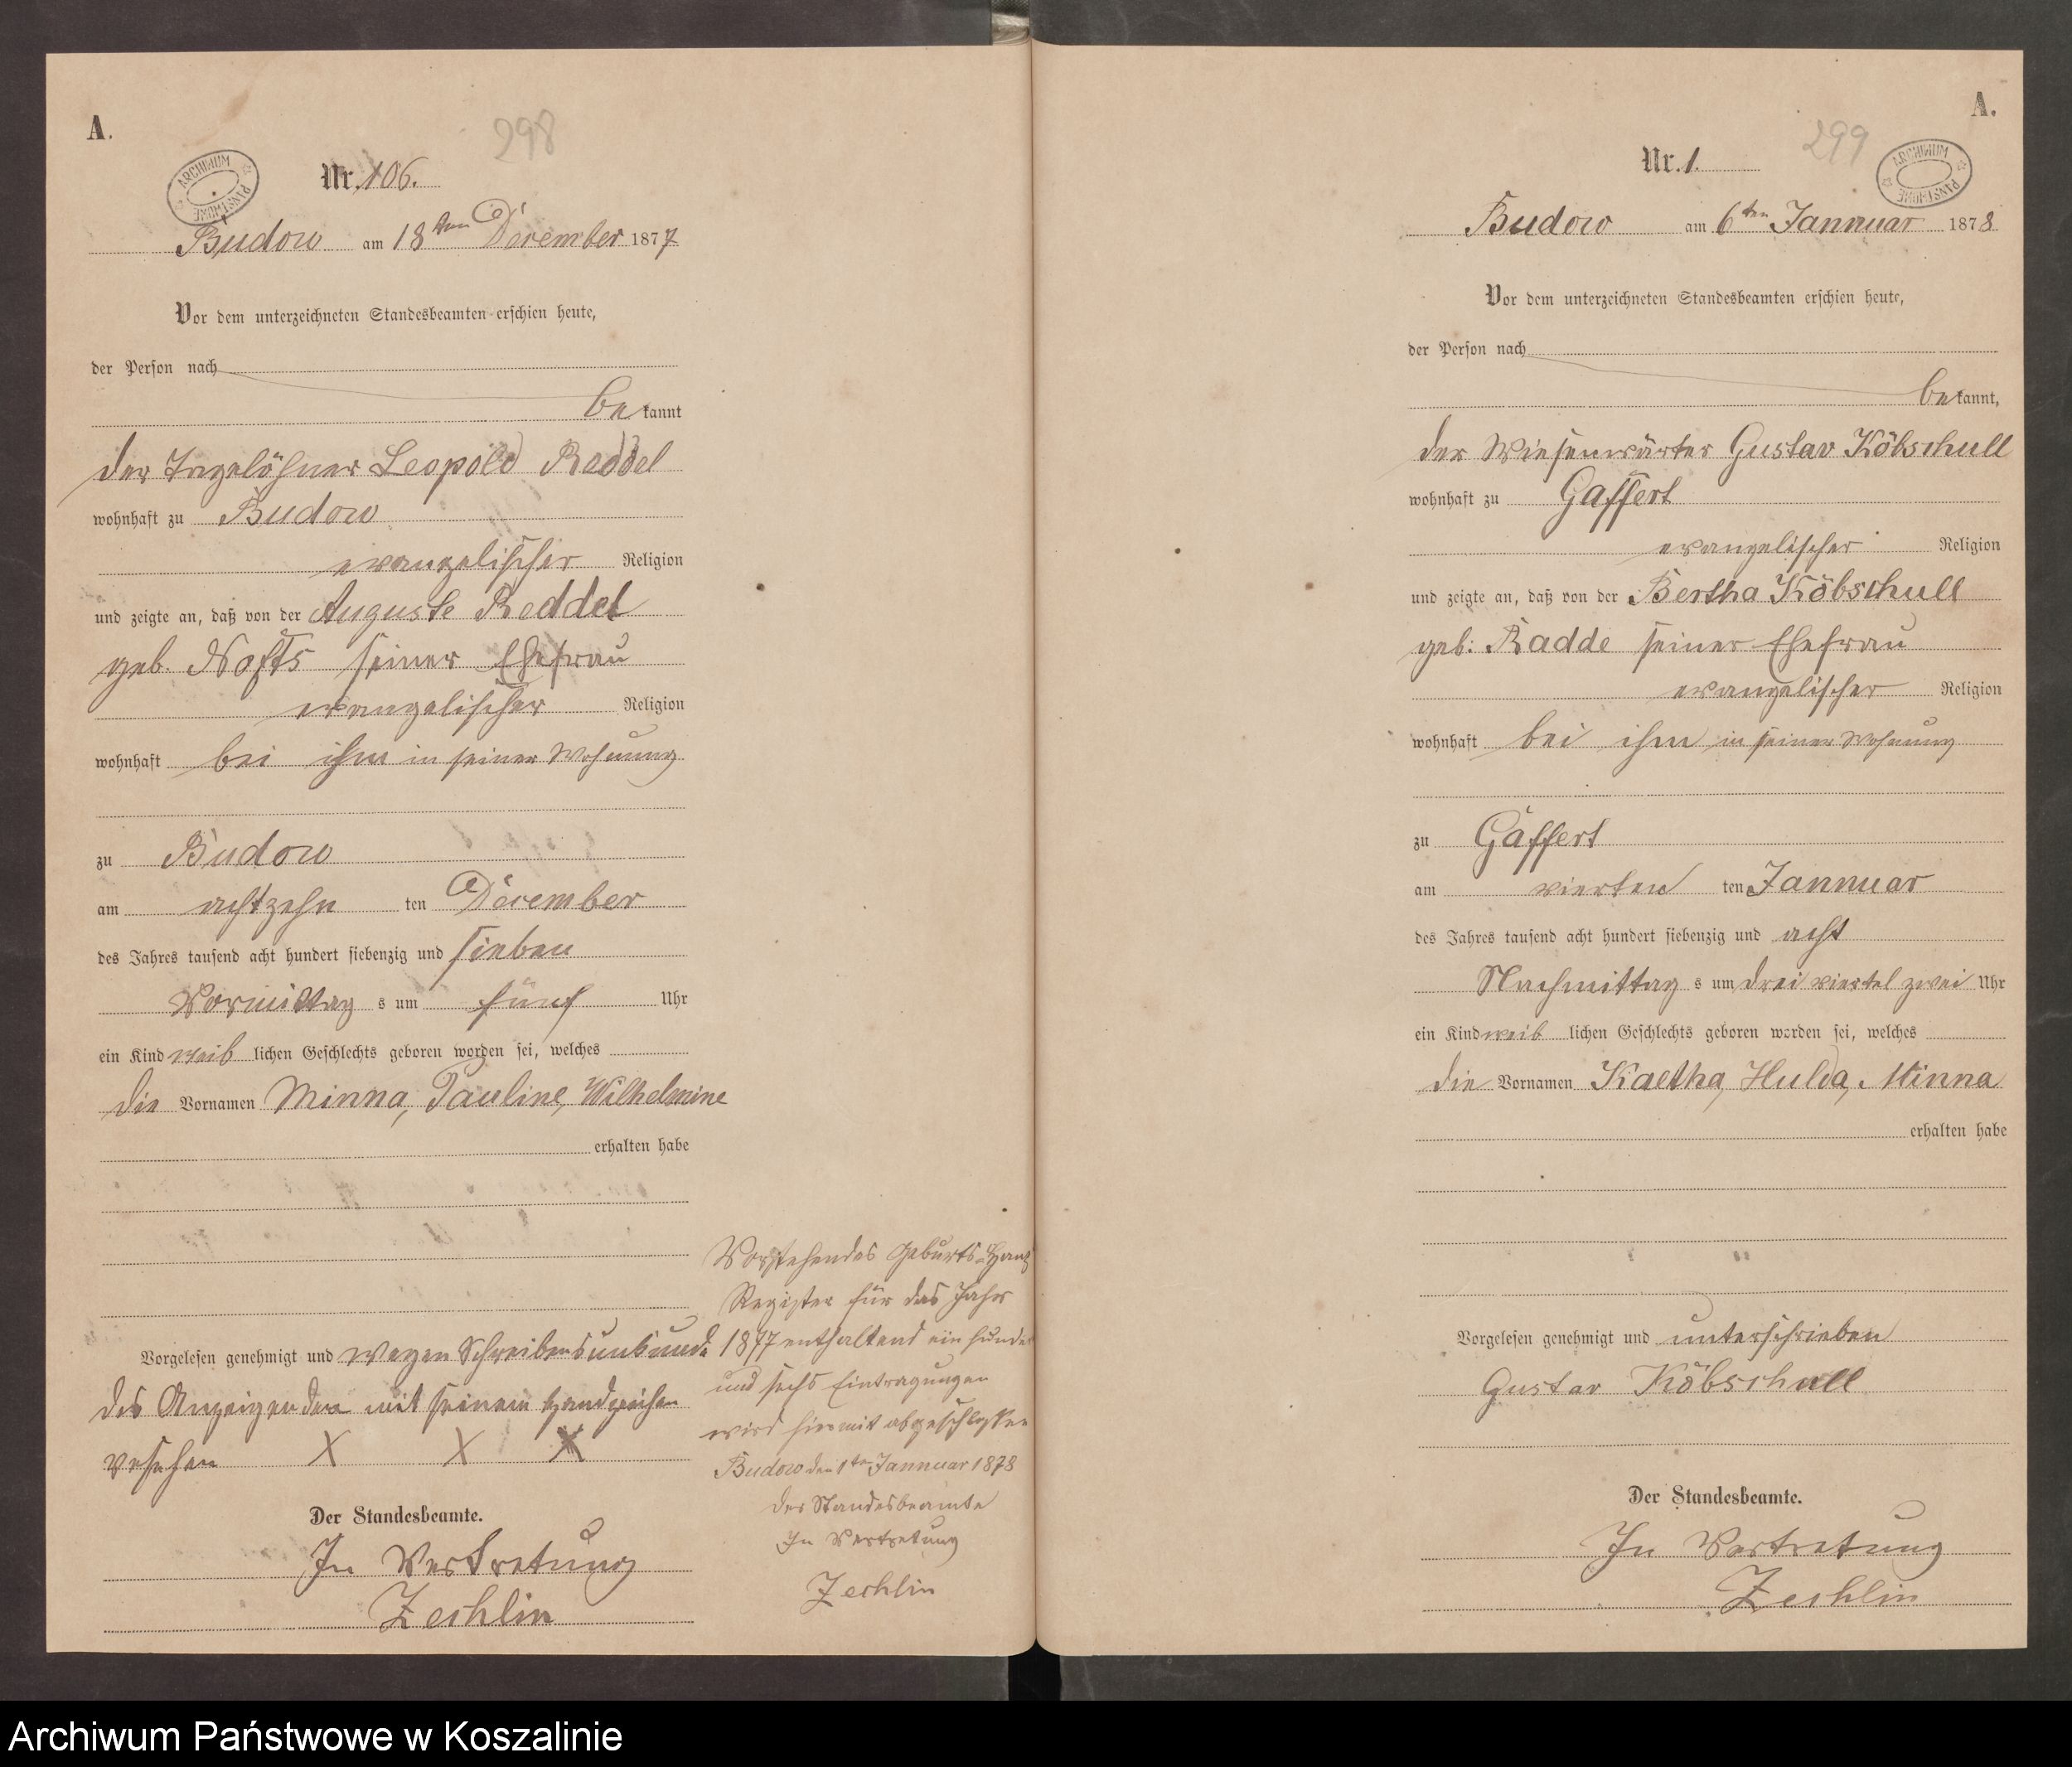 A.
298
Nr. 106.
ARCHIWUM PAŃSTWOWE
Budow am 18ten December 1877
Vor dem unterzeichneten Standesbeamten erschien heute,
der Person nach
bekannt
der Tagelöhner Leopold Reddel
wohnhaft zu Budow
evangelischer Religion
und zeigte an, daß von der Auguste Reddel
geb. seiner Ehefrau
evangelischer Religion
wohnhaft bei ihm in seiner Wohnung
zu Budow
am achtzehn ten December
des Jahres tausend acht hundert siebenzig und sieben
Vormittag s um fünf Uhr
ein Kind weib lichen Geschlechts geboren worden sei, welches
die Vornamen Minna, Pauline, Wilhelmine
erhalten habe
Vorgelesen genehmigt und wegen Schreibensunkunde
des Anzeigenden mit seinem Handzeichen
versehen X X X
Der Standesbeamte.
In Vertretung
Zechlin
Vorstehendes Geburts-Haupt
Register für das Jahr
1877 enthaltend ein hundert
und sechs Eintragungen
wird hiermit abgeschlossen
Budow den 1ten Jannuar 1878
Der Standesbeamte
In Vertretung
Zechlin
A.
299
Nr. 1.
ARCHIWUM PAŃSTWOWE
Budow am 6ten Jannuar 1878
Vor dem unterzeichneten Standesbeamten erschien heute,
der Person nach
bekannt,
der Wiesenwärter Gustav Köbschull
wohnhaft zu Gaffert
evangelischer Religion
und zeigte an, daß von der Bertha Köbschull
geb: Radde seiner Ehefrau
evangelischer Religion
wohnhaft bei ihm in seiner Wohnung
zu Gaffert
am vierten ten Jannuar
des Jahres tausend acht hundert siebenzig und acht
Nachmittag s um drei viertel zwei Uhr
ein Kind weib lichen Geschlechts geboren worden sei, welches
die Vornamen Kaetha, Hulda, Minna
erhalten habe
Vorgelesen genehmigt und unterschrieben
Gustav Köbschull
Der Standesbeamte.
In Vertretung
Zechlin
Archiwum Państwowe w Koszalinie